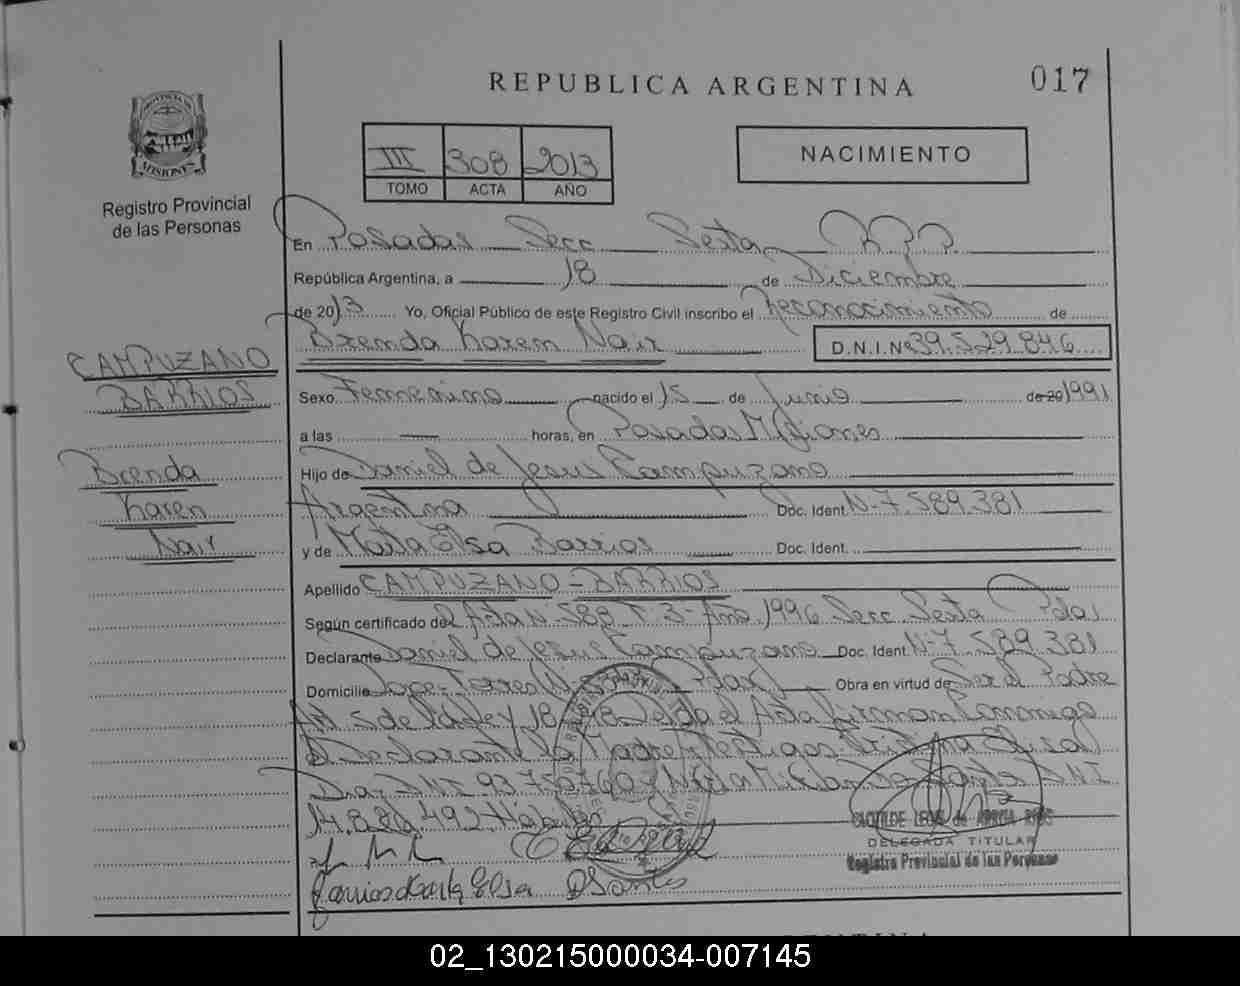 REPUBLICA ARGENTINA
017
PROVINCIA DE
MISIONES
Registro Provincial
de las Personas
III 308 2013
TOMO ACTA AÑO
NACIMIENTO
En Posadas Secc Sexta
República Argentina, a 18 de Diciembre
de 2013 Yo, Oficial Público de este Registro Civil inscribo el Reconocimiento de
Brenda Karem Nair D.N.I.Nº 39.529.846
CAMPUZANO
BARRIOS
Brenda
Karen
Nair
Sexo Femenino nacido el 15 de Junio de 20 1991
a las horas, en Posadas Misiones
Hijo de Daniel de Jesus Campuzano
Argentina Doc. Ident. Nº 7.589.381
y de Marta Elsa Barrios Doc. Ident.
Apellido CAMPUZANO-BARRIOS
Según certificado de Acta Nº 588 T 3 Año 1996 Secc Sexta Pdas
Declarante Daniel de Jesus Campuzano Doc. Ident. Nº 7.589.381
Domicilio Jose Torres Pdas Obra en virtud de Ser el Padre
Art 5 de la Ley 18 el Acta firman Conmigo
el Declarante la Madre y Testigos
Diaz DNI 93.755.760 y DNI
14.880.492 Hábiles
Barrios Marta Elsa
DELEGADA TITULAR
Registro Provincial de las Personas
02_130215000034-007145